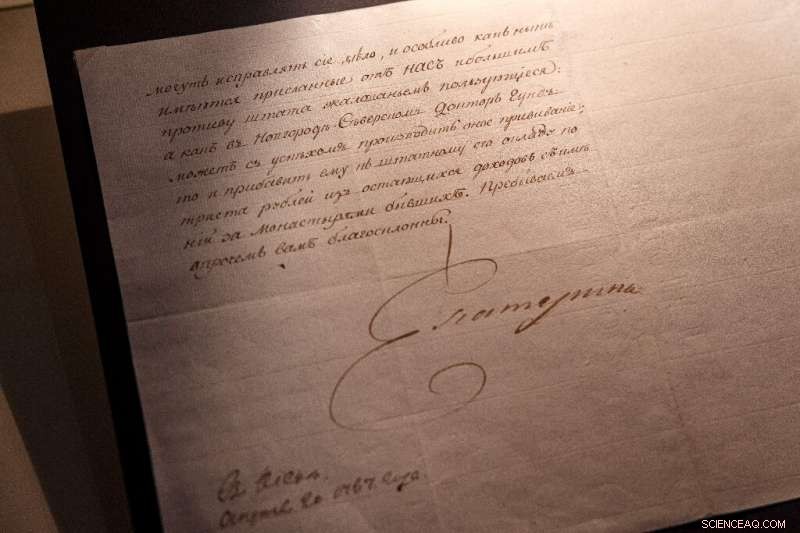 могутъ исправлять сіе дѣло, и особливо какъ нынѣ
имѣются присланные отъ насъ и большимъ
противу штата жалованьемъ пользующіеся:
а какъ въ Новгородѣ Сѣверскомъ Докторъ
можетъ съ успѣхомъ производить оное прививаніе;
то и прибавить ему къ штатному его окладу по
триста рублей изъ остающихся доходовъ съ имѣ
ній за монастырями бывшихъ. Пребываемъ
впрочемъ вамъ благосклонны.
Екатерина
Кіевѣ,
20 1787 года.
SCIENCEAQ.COM